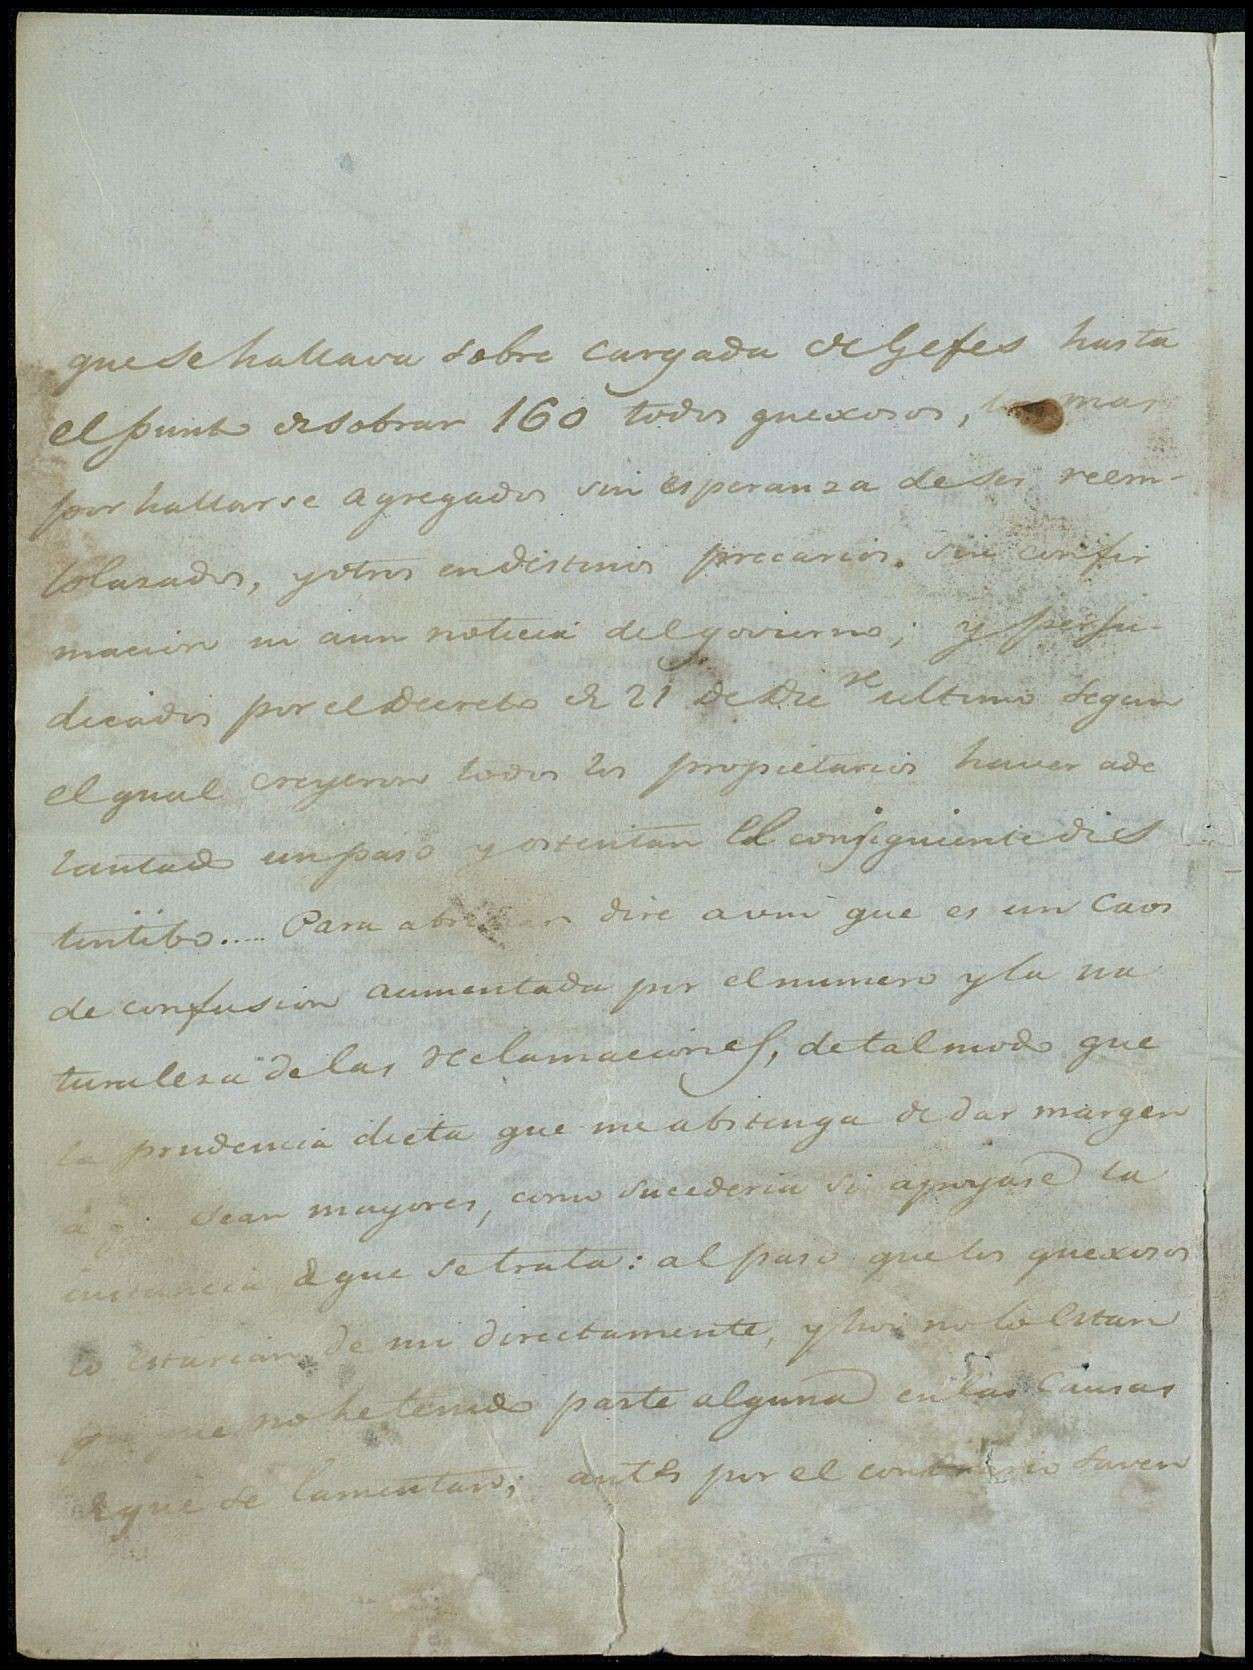 que se hallava sobre cargada de Gefes hasta
el punto de sobrar 160 todos quexosos, los mas
por hallarse agregados sin esperanza de ser reem-
plazados, y otros en distinos precarios. sin confir
macion ni aun noticia del govierno; y perju-
dicados por el Decreto de 21 de Dic.re ultimo segun
el qual creyeron todos los propietarios haver ade
lantado un paso y ostentan el consiguiente dis
tintibo..... Para abreviar dire a vm que es un Caos
de confusion aumentada por el numero y la na
turaleza de las reclamaciones, de tal modo que
la prudencia dicta que me abstenga de dar margen
á q. sean mayores, como sucederia si apoyase la
instancia de que se trata: al paso que los quexosos
lo estarian de mi directamente, y hoi no lo estan
por que no he tenido parte alguna en las Causas
de que se lamentan; antes por el contrario saven